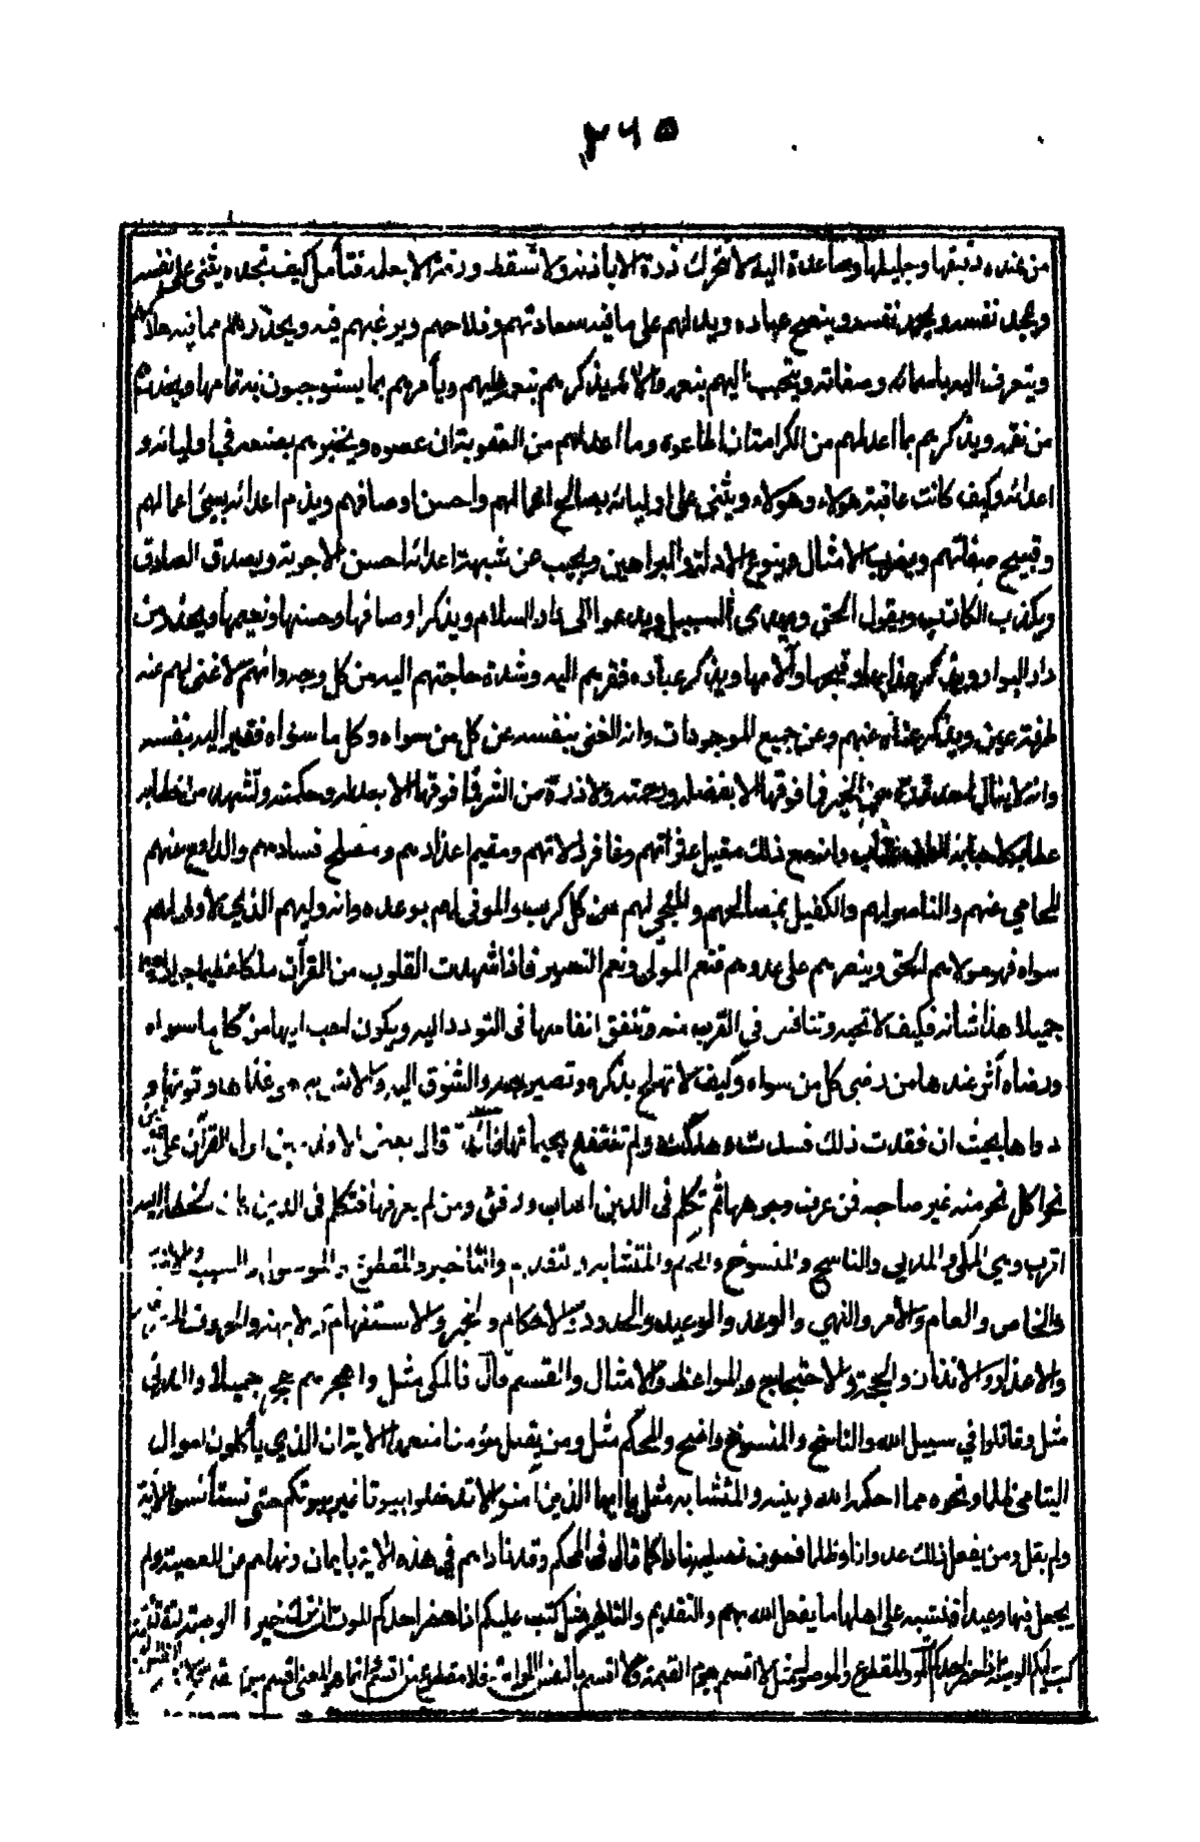 ٢٦٥
من عنده دقيقها وجليلها وصاعدة اليه لا تتحرك ذرة الا باذنه ولا تسقط ورقة الا بعلمه فتأمل كيف تجده يثني على نفسه
ويمجد نفسه ويحمد نفسه وينصح عباده ويدلهم على ما فيه سعادتهم وفلاحهم ويرغبهم فيه ويحذرهم مما فيه هلاكهم
ويتعرف اليهم باسمائه وصفاته ويتحبب اليهم بنعمه والائه يذكرهم بنعمه عليهم ويأمرهم بما يستوجبون به تمامها ويحذرهم
من نقمه ويذكرهم بما اعد لهم من الكرامة ان اطاعوه وما اعد لهم من العقوبة ان عصوه ويخبرهم بصنعه في اوليائه و
اعدائه وكيف كانت عاقبة هولاء وهولاء ويثني على اوليائه بصالح اعمالهم واحسن اوصافهم ويذم اعدائه بسيئ اعمالهم
وقبيح صفاتهم ويضرب الامثال وينوع الادلة والبراهين ويجيب عن شبهة اعدائه احسن الاجوبة ويصدق الصادق
ويكذب الكاذب ويقول الحق ويهدى السبيل ويدعو الى دار السلام ويذكر اوصافها وحسنها ونعيمها ويحذر من
دار البوار ويذكر عذابها وقبحها وآلامها ويذكر عباده فقرهم اليه وشدة حاجتهم اليه من كل وجه وانهم لا غنى لهم عنه
طرفة عين ويذكر غناه عنهم وعن جميع الموجودات وانه الغنى بنفسه عن كل من سواه وكل ما سواه فقير اليه بنفسه
وانه لا ينال احد ذرة من الخير فما فوقها الا بفضله ورحمته ولا ذرة من الشر فما فوقها الا بعدله وحكمته وتشهد من خطابه
وانه مع ذلك مقيل عثراتهم وغافر زلاتهم ومقيم اعذارهم ومصلح فسادهم والدافع عنهم
المحامي عنهم والناصر لهم والكفيل بمصالحهم والمنجي لهم من كل كرب والموفى لهم بوعده وانه وليهم الذي لا ولي لهم
سواه فهو مولاهم الحق وينصرهم على عدوهم فنعم المولى ونعم النصير فاذا شهدت القلوب من القرآن ملكا عظيما
جميلا هذا شانه فكيف لا تحبه وتنافس في القرب منه وتنفق انفاسها فى التودد اليه ويكون احب اليها من كل ما سواه
ورضاه آثر عندها من رضى كل من سواه وكيف لا تلهج بذكره وتصير حبه والشوق اليه والانس به هى غذاها وقوتها و
دواها بحيث ان فقدت ذلك فسدت وهلكت ولم تنتفع بحياتها فائدة قال بعض انزل القرآن على
نحوا كل نحو منه غير صاحبه فمن عرف وجوهها ثم تكلم فى الدين اصاب ووفق ومن لم يعرفها فتكلم فى الدين كان الخطا اليه
اقرب وهى المكى والمدني والناسخ والمنسوخ والمحكم والمتشابه والتقديم والتاخير والمقطوع والموصول والسبب
والخاص والعام والأمر والنهي والوعد والوعيد والحدود والاحكام والخبر والاستفهام
والاعذار والانذار والحجة والاحتجاج والمواعظ والامثال والقسم قال فالمكى مثل واهجرهم هجرا جميلا والمدني
مثل وقاتلوا في سبيل الله والناسخ والمنسوخ واضح والمحكم مثل ومن يقتل مؤمنا متعمدا الاية ان الذين يأكلون اموال
اليتامى ظلما ونحوه مما احكمه الله وبينه والمتشابه مثل يا ايها الذين آمنوا لا تدخلوا بيوتا غير بيوتكم حتى تستأنسوا الآية
ولم يقل ومن يفعل ذلك عدوانا وظلما فسوف نصليه نارا كما قال فى المحكم وقد ناداهم في هذه الاية بايمان ونهاهم عن المعصية ولم
يجعل فيها وعيدا فاشتبه على اهلها ما يفعل الله بهم والتقديم والتاخير مثل كتب عليكم اذا حضر احدكم الموت ان ترك خيرا الوصية
كتب عليكم الوصية اذا حضر احدكم الموت والمقطوع والموصول مثل لا اقسم بيوم القيمة ولا اقسم بالنفس اللوامة